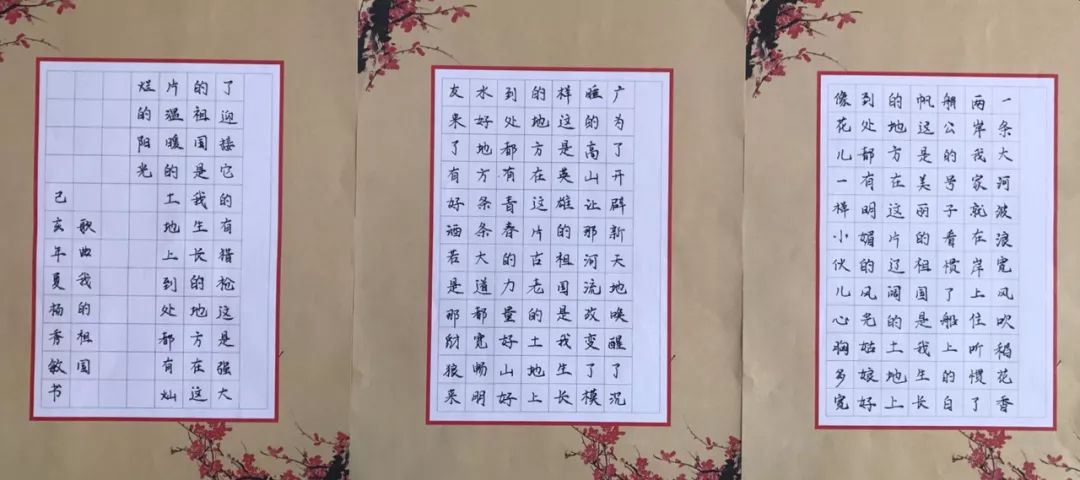 一条大河波浪宽风吹稻花香
两岸我家就在岸上住听惯了
艄公的号子看惯了船上的白
帆这是美丽的祖国是我生长
的地方在这片辽阔的土地上
到处都有明媚的风光姑娘好
像花儿一样小伙儿心胸多宽
广为了开辟新天地唤醒了沉
睡的高山让那河流改变了模
样这是英雄的祖国是我生长
的地方在这片古老的土地上
到处都有青春的力量好山好
水好地方条条大道都宽畅朋
友来了有好酒若是那豺狼来
了迎接它的有猎枪这是强大
的祖国是我生长的地方在这
片温暖的土地上到处都有灿
烂的阳光
歌曲我的祖国
己亥年夏杨秀敏书